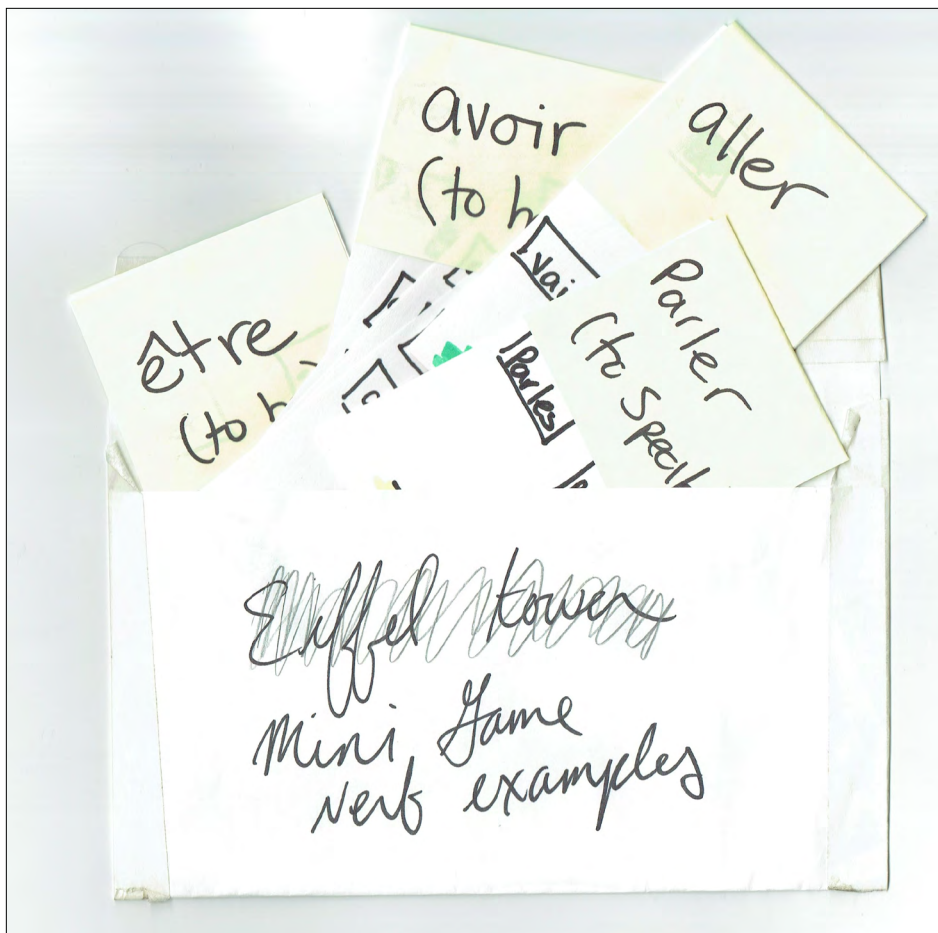 avoir
(to h
aller
être
(to
Vai
Parles
Parler
(to
Eiffel tower
Mini Game
Verb examples